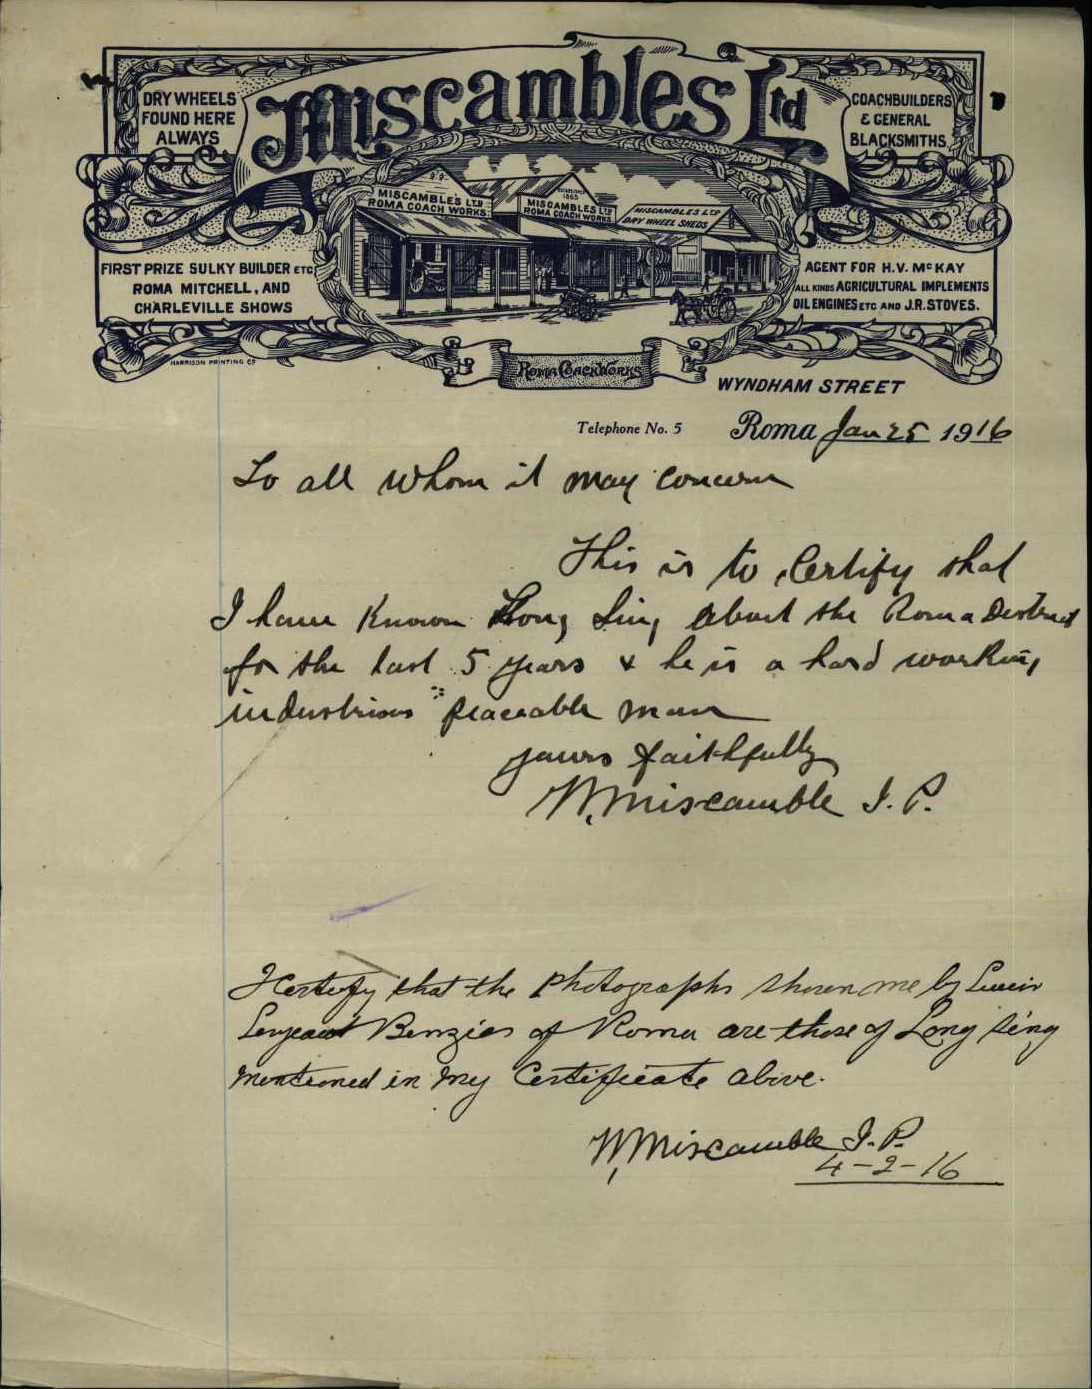 MISCAMBLES Ltd
DRY WHEELS
FOUND HERE
ALWAYS
COACHBUILDERS
& GENERAL
BLACKSMITHS
MISCAMBLES LTD
ROMA COACH WORKS
ESTABLISHED
1865
MISCAMBLES LTD
ROMA COACH WORKS
MISCAMBLES LTD
DRY WHEEL SHEDS
FIRST PRIZE SULKY BUILDER ETC
ROMA MITCHELL, AND
CHARLEVILLE SHOWS
AGENT FOR H.V. McKAY
ALL KINDS AGRICULTURAL IMPLEMENTS
OIL ENGINES ETC AND J.R. STOVES.
HARRISON PRINTING Co
ROMA COACH WORKS
WYNDHAM STREET
Telephone No. 5 Roma Jan 25 1916
To all whom it may concern
This is to certify that
I have known Hong Sing about the Roma District
for the last 5 years & he is a hard working
industrious peaceable man
yours faithfully
W. Miscamble J. P.
I Certify that the photographs shown me by Senior
Sergeant Benzies of Roma are those of Long Sing
mentioned in my Certificate above.
W. Miscamble J. P.
4-2-16